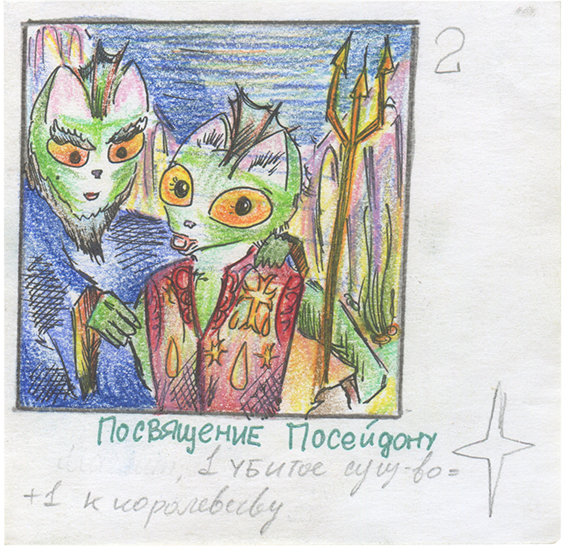 2
ПОСВЯЩЕНИЕ ПОСЕЙДОНУ
, 1 убитое сущ-во=
+1 к королевству